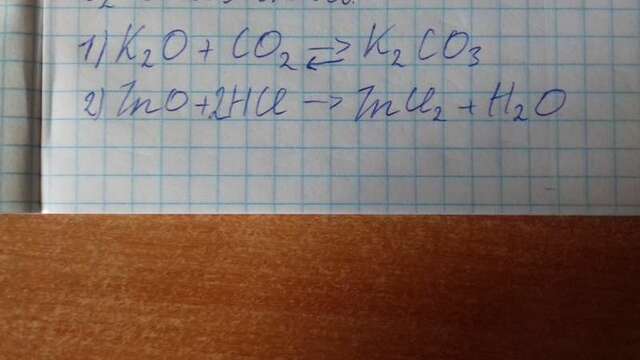 1) K₂O + CO₂ ⇄ K₂CO₃
2) ZnO + 2HCl → ZnCl₂ + H₂O